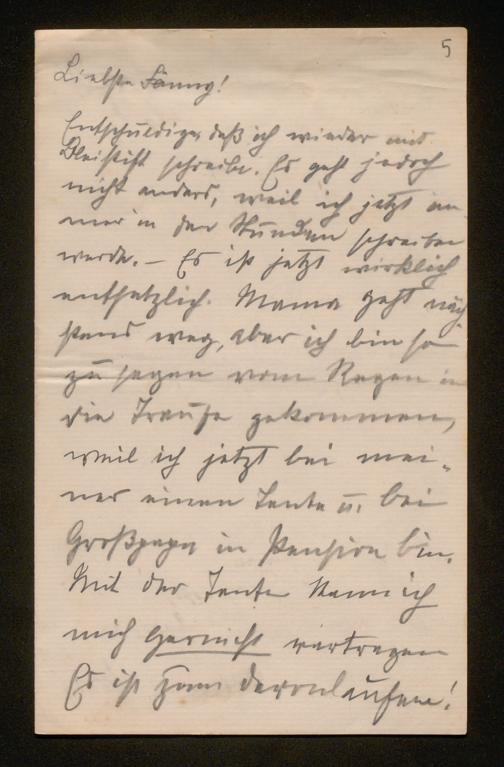 5
Liebste Fanny!
Entschuldige, daß ich wieder mit
Bleistift schreibe. Es geht jedoch
nicht anders, weil ich jetzt im
mer in den Stunden schreiben
werde. – Es ist jetzt wirklich
entsetzlich. Mama geht näch
stens weg, aber ich bin so
zu sagen vom Regen in
die Traufe gekommen,
weil ich jetzt bei mei-
ner einen Tante u. bei
Großpapa in Pension bin.
Mit der Tante kann ich
mich garnicht vertragen
Es ist zum davonlaufen!